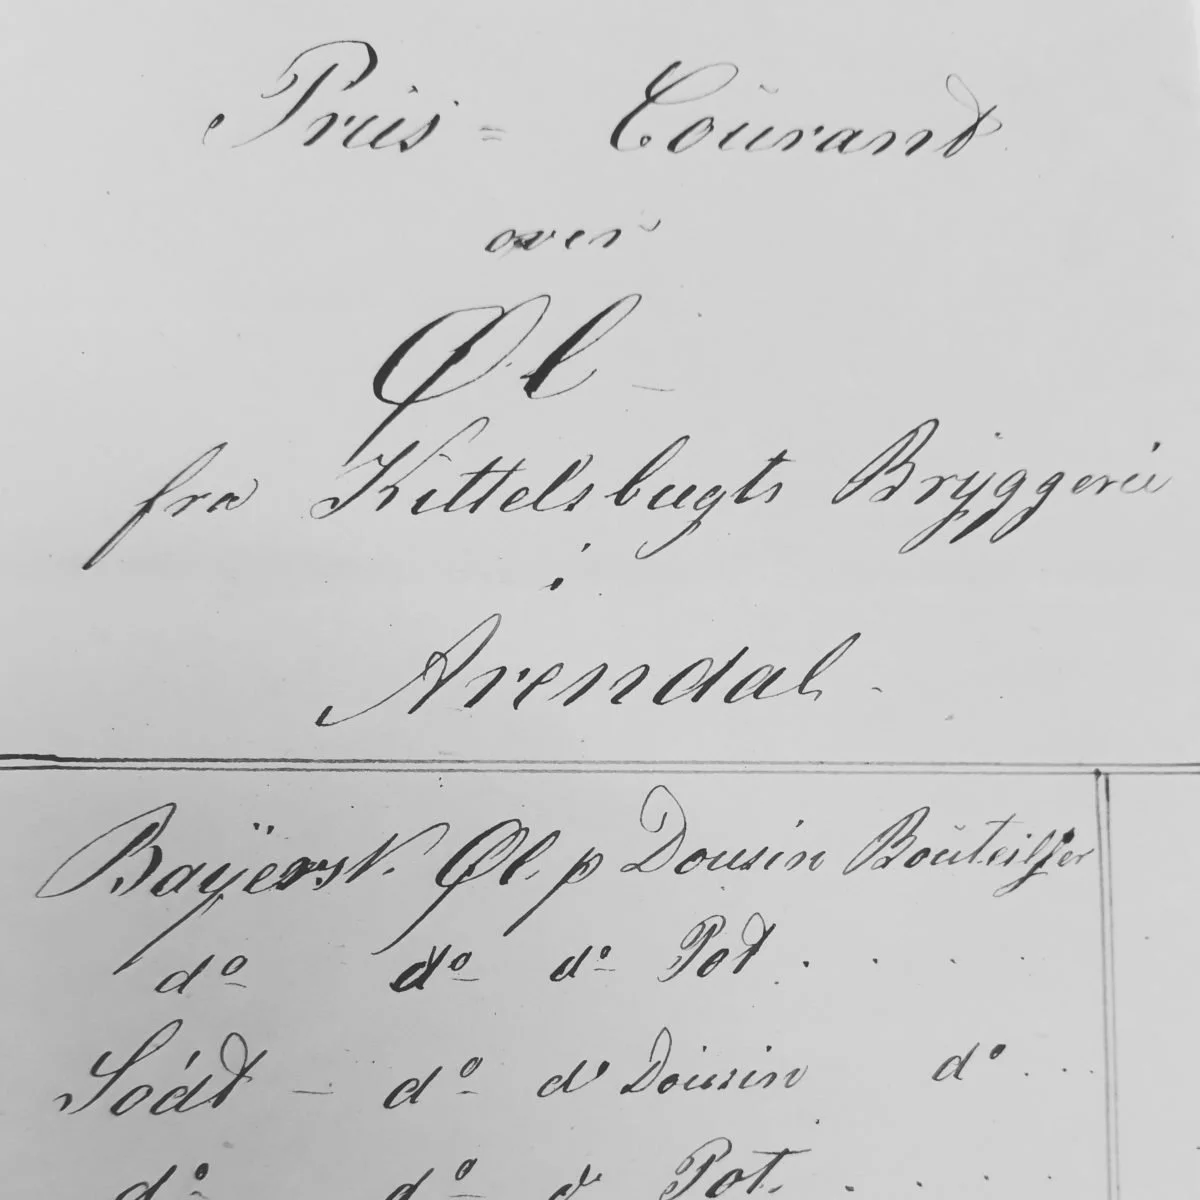 Priis = Courant
over
Øl
fra Kittelsbugts Bryggerie
i
Arendal
Bayersk Øl p Dousin Bouteiller
do do do Pot
Södt do do Dousin do
do do do Pot